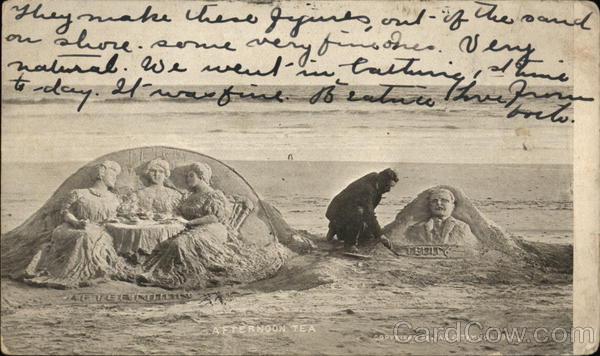 They make these figures, out of the sand
on shore. some very fine ones. Very
natural. We went in bathing, 
to-day. It was fine. Love from
both.
TEDDY
AFTERNOON TEA
AFTERNOON TEA
COPYRIGHT
CardCow.com